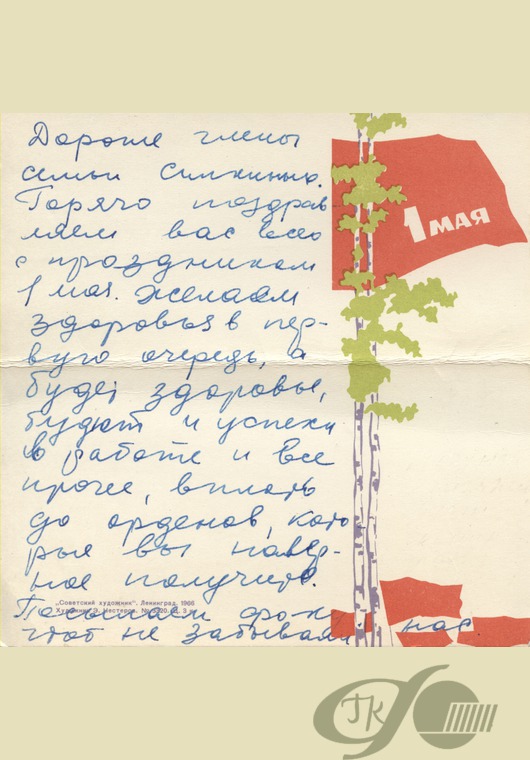 Дорогие члены
семьи Силкиных.
Горячо поздрав-
ляем вас всех
с праздником
1 мая. Желаем
здоровья в пер-
вую очередь, а
будет здоровье,
будут и успехи
в работе и все
прочее, вплоть
до орденов, кото-
рые вы навер-
ное получите.
Посылаем фото,
чтоб не забывали нас.
1 МАЯ
„Советский художник". Ленинград. 1966
Художник Э. Нестеров.
ГК